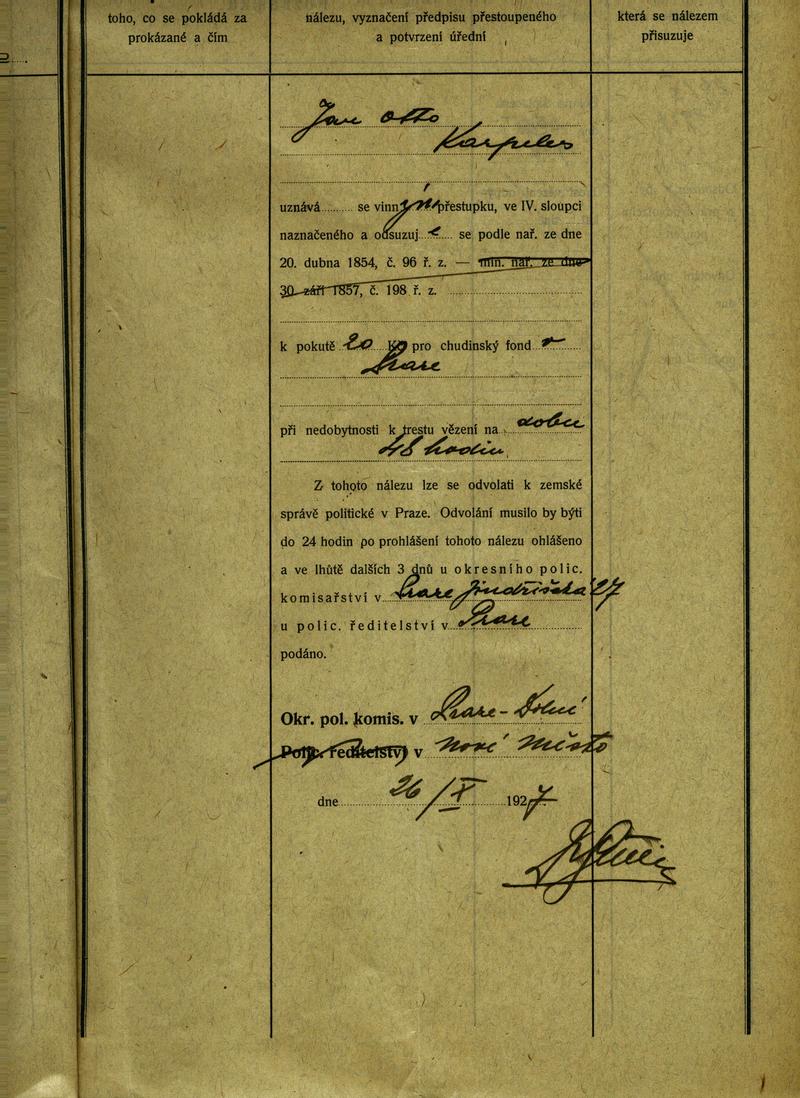 toho, co se pokládá za
prokázané a čím
nálezu, vyznačení předpisu přestoupeného
a potvrzení úřední
která se nálezem
přisuzuje
Jan Otto
uznává se vinným přestupku, ve IV. sloupci
naznačeného a odsuzuje se podle nař. ze dne
20. dubna 1854, č. 96 ř. z. — min. nař. ze dne
30. září 1857, č. 198 ř. z.
k pokutě 20 Kč pro chudinský fond v
Praze
při nedobytnosti k trestu vězení na
48 hodin
Z tohoto nálezu lze se odvolati k zemské
správě politické v Praze. Odvolání musilo by býti
do 24 hodin po prohlášení tohoto nálezu ohlášeno
a ve lhůtě dalších 3 dnů u okresního polic.
komisařství v Praze
u polic. ředitelství v Praze
podáno.
Okr. pol. komis. v Praze-
Polic. ředitelství v Nové Město
dne 26/X 1927